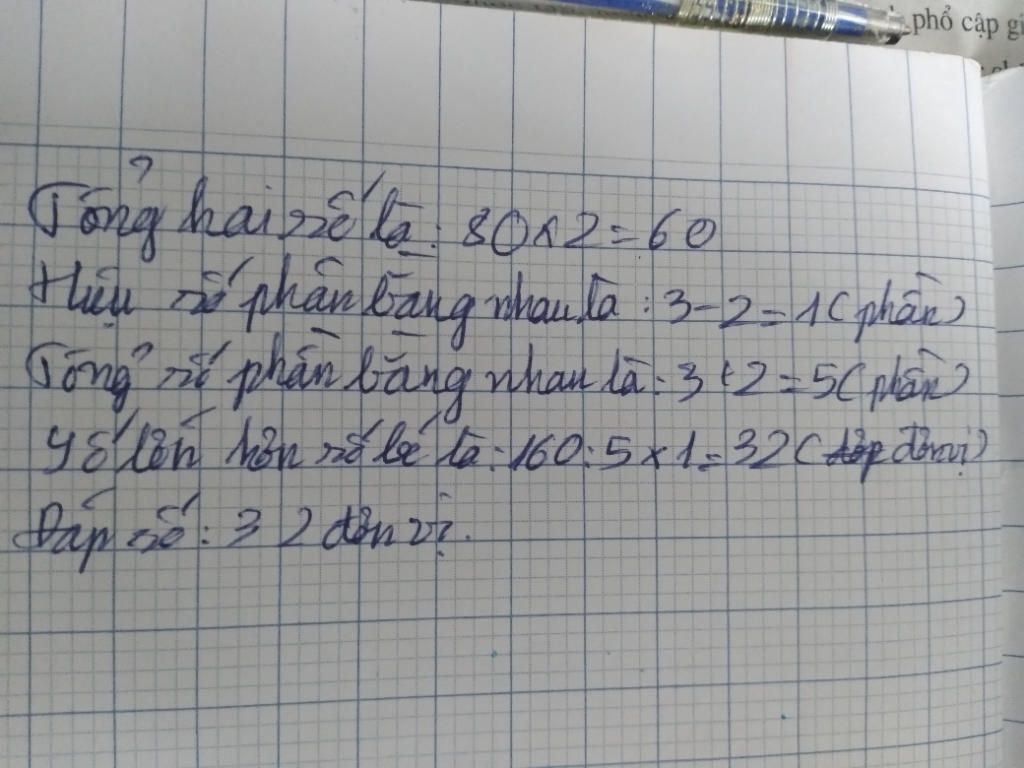 phổ cập gi
Tổng hai số là: 80 x 2 = 60
Hiệu số phần bằng nhau là: 3 - 2 = 1 (phần)
Tổng số phần bằng nhau là: 3 + 2 = 5 (phần)
Số lớn hơn số bé là: 160 : 5 x 1 = 32 (đơn vị)
Đáp số: 32 đơn vị.